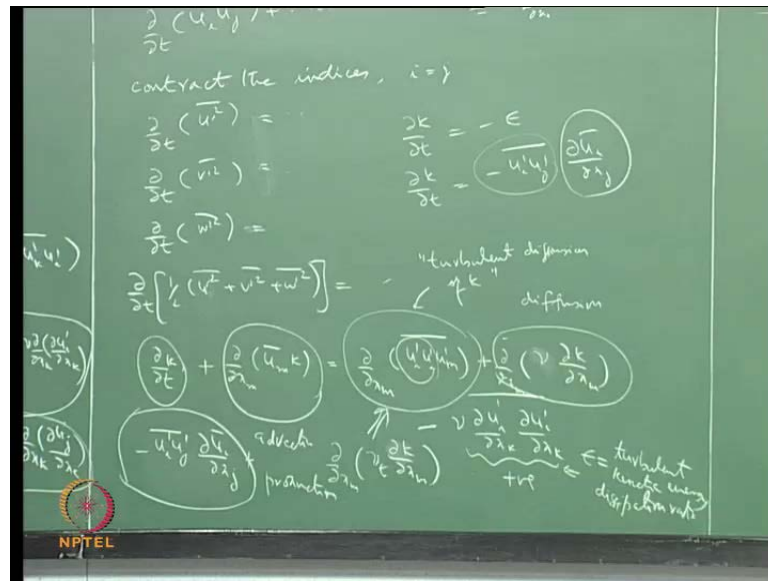 ∂/∂t (u_i u_j) +
contract the indices, i = j
∂/∂t (\overline{u'^2}) =
∂k/∂t = - ϵ
∂/∂t (\overline{v'^2}) =
∂k/∂t = - \overline{u_i' u_j'} ∂\overline{u}_i/∂x_j
∂/∂t (\overline{w'^2}) =
"turbulent diffusion of k"
∂/∂t [1/2 (\overline{u'^2} + \overline{v'^2} + \overline{w'^2})] =
diffusion
∂k/∂t + ∂/∂x_m (\overline{u}_m k) = ∂/∂x_m (\overline{u_i' u_i' u_m'}) + ∂/∂x_m (ν ∂k/∂x_m)
- \overline{u_i' u_j'} ∂\overline{u}_i/∂x_j
advection
production
∂/∂x_m (ν_t ∂k/∂x_m)
- ν ∂u_i'/∂x_k ∂u_i'/∂x_k
+ve
ϵ = turbulent
kinetic energy
dissipation rate
NPTEL